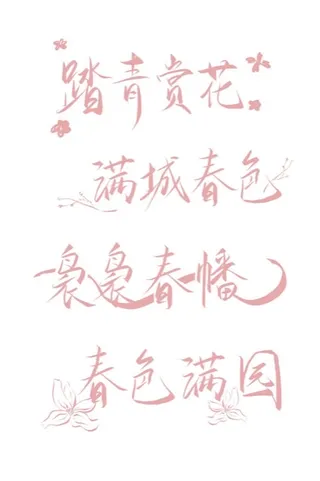 踏青赏花
满城春色
袅袅春幡
春色满园